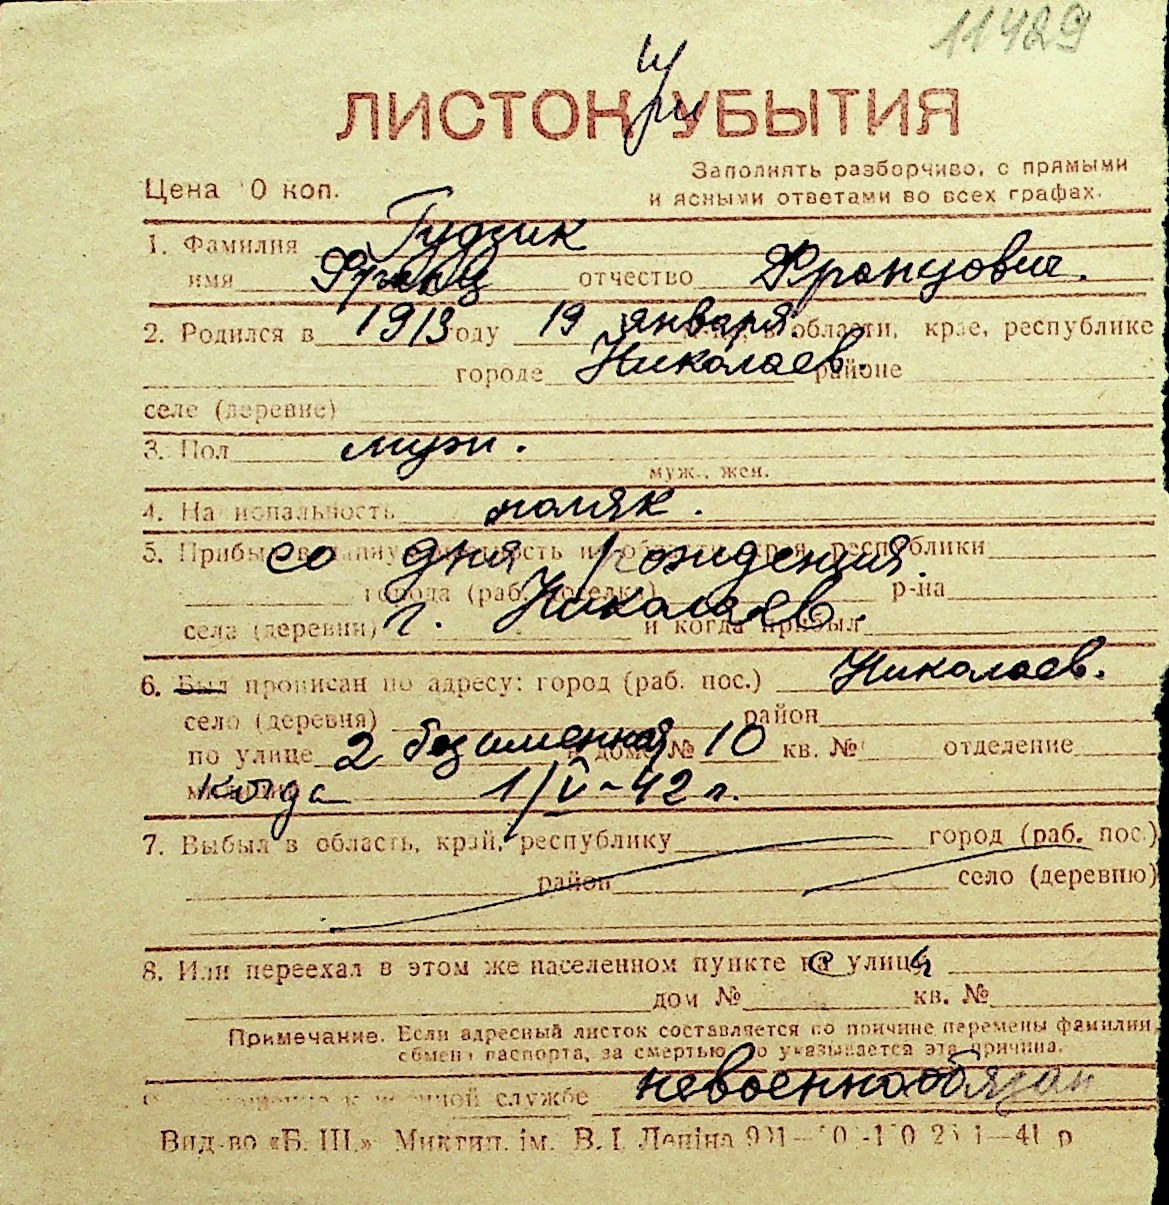 11429
ЛИСТОК УБЫТИЯ
При
Заполнять разборчиво, с прямыми
Цена 0 коп. и ясными ответами во всех графах.
1. Фамилия Гудзик
имя Франц отчество Францович.
2. Родился в 1913 году 19 января. в области, крае, республике
городе Николаев. районе
селе (деревне)
3. Пол муж.
муж., жен.
4. Национальность поляк.
5. Прибыл в данную местность из области, края, республики
со дня рождения.
города (раб. поселка) р-на
г. Николаев.
села (деревни) и когда прибыл
6. Был прописан по адресу: город (раб. пос.) Николаев.
село (деревня) район
по улице 2 безименная дом № 10 кв. № отделение
милиции когда 1/V-42 г.
7. Выбыл в область, край, республику город (раб. пос.)
район село (деревню)
8. Или переехал в этом же населенном пункте на улицу
дом № кв. №
Примечание. Если адресный листок составляется по причине перемены фамилии,
обмена паспорта, за смертью, то указывается эта причина.
к военной службе невоеннообязан
Вид-во «Б. Ш.» Миктип. ім. В. І. Леніна